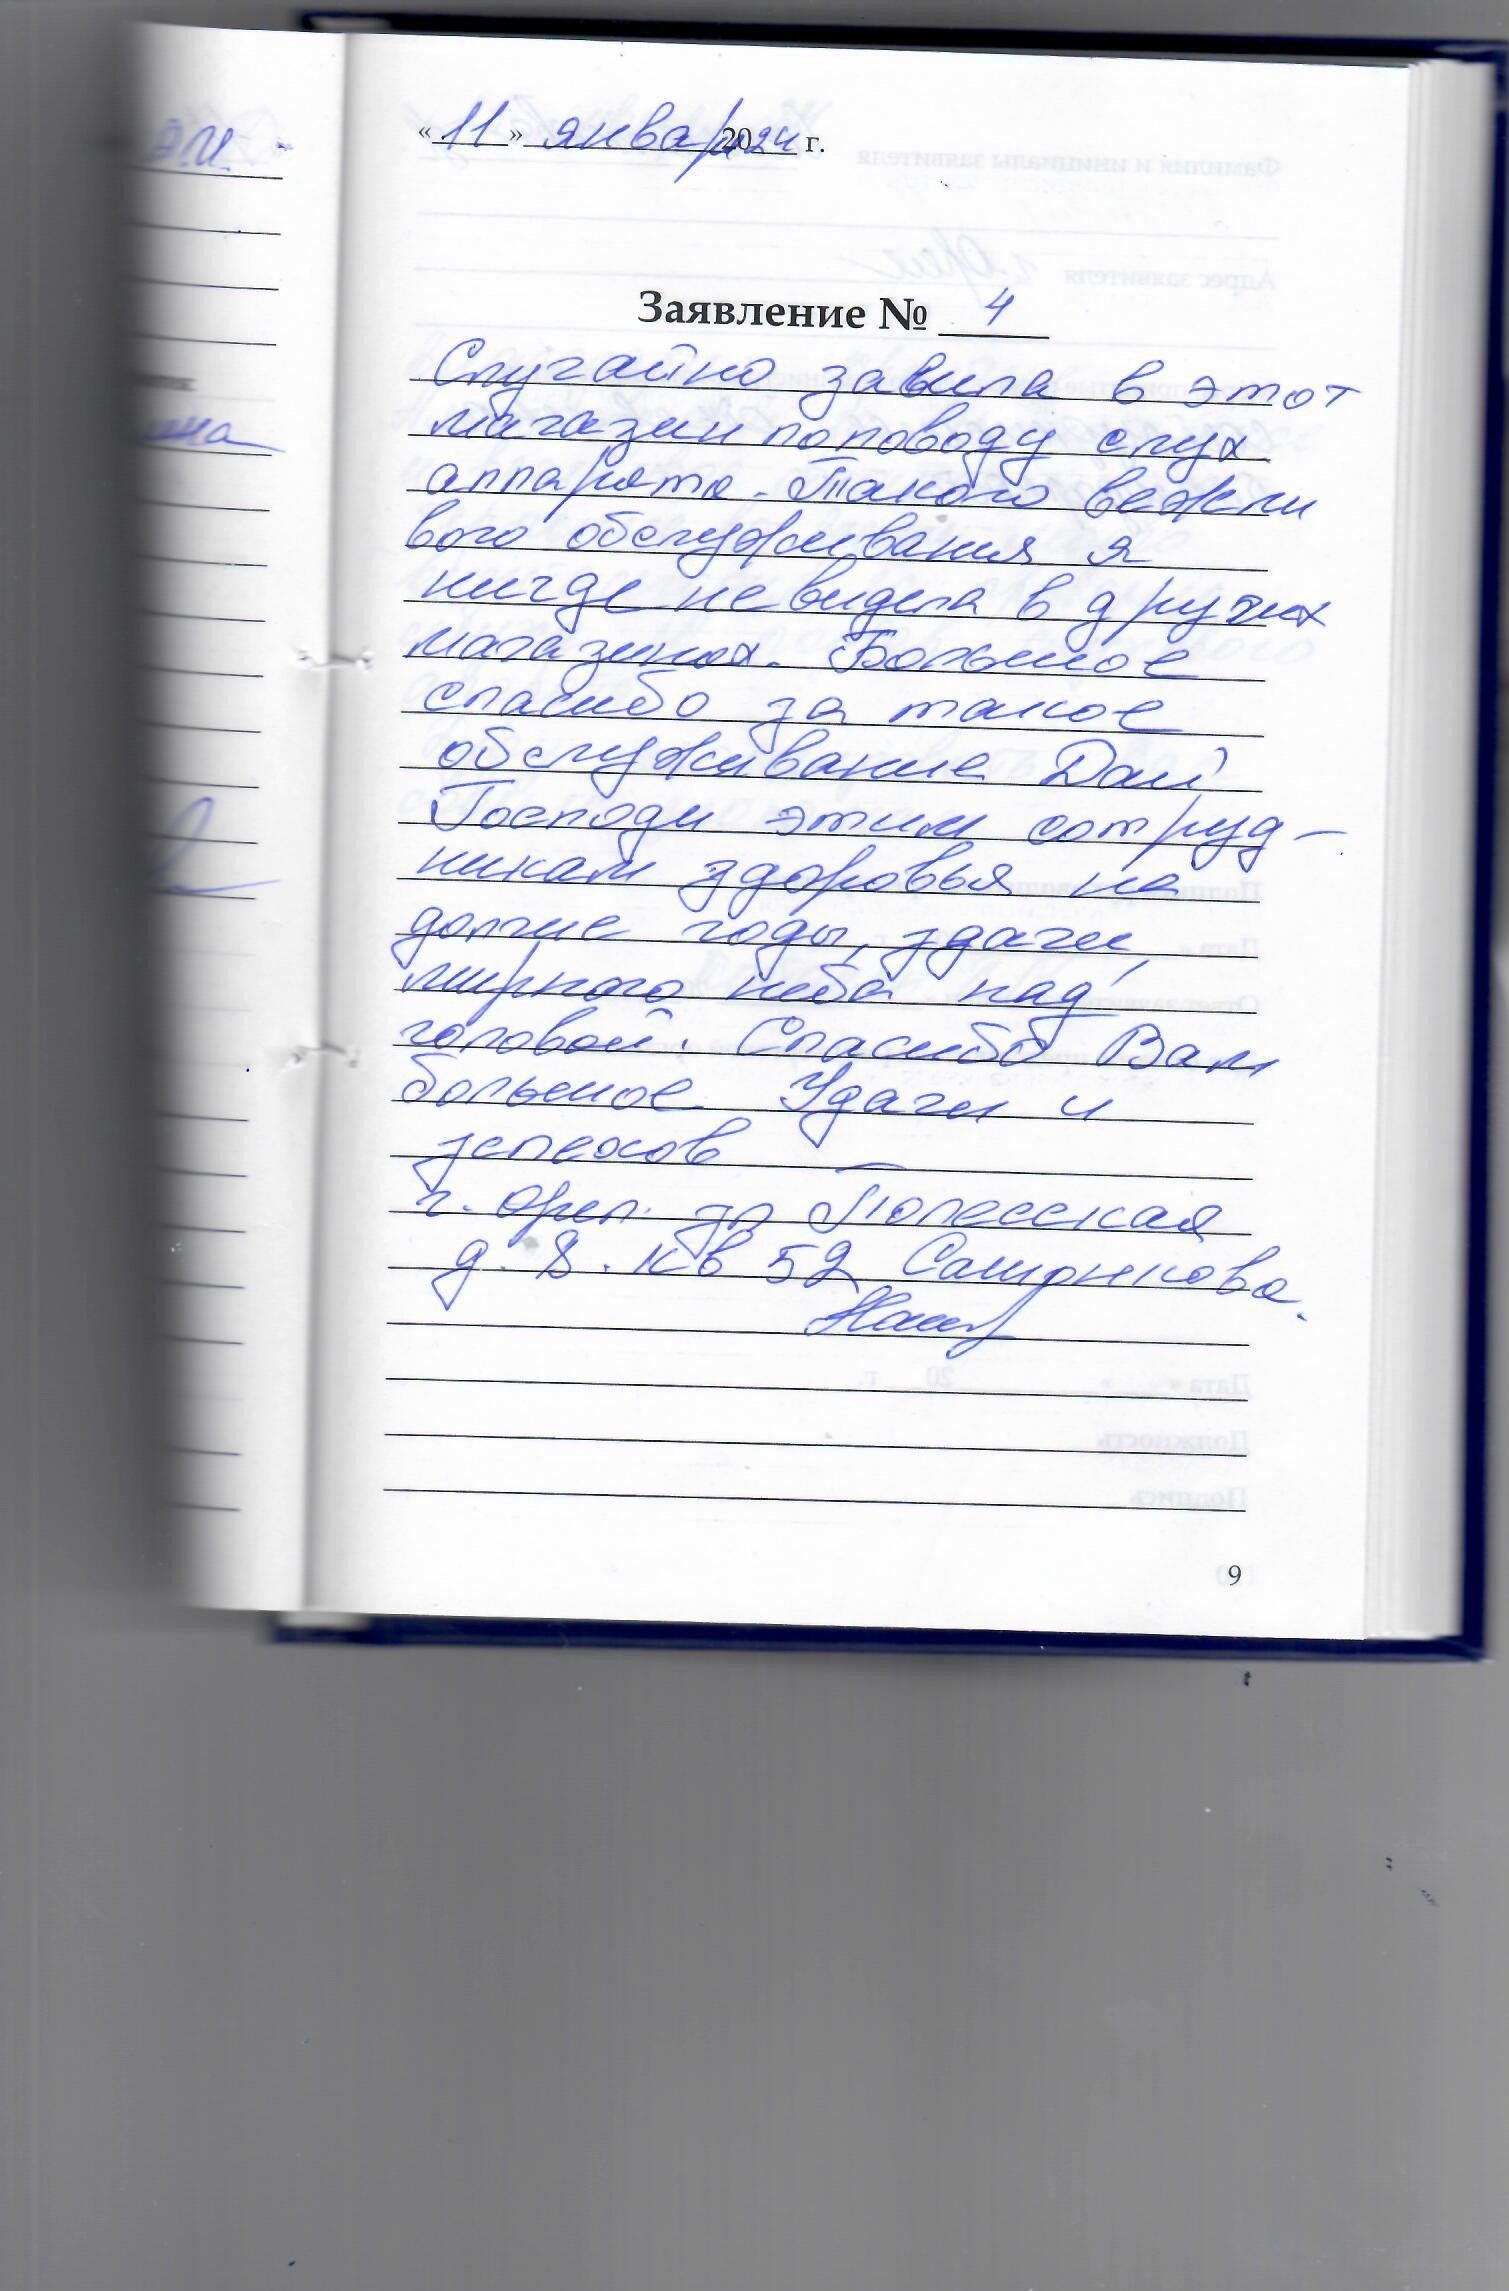 « 11 » января 2024 г.
Заявление № 4
Случайно завила в этот
магазин поповоду слух.
аппарата. Такого вежли
вого обслуживания я
нигде не видела в других
магазинах. Большое
спасибо за такое
обслуживание Дай
Господи этим сотруд-
никам здоровья на
долгие годы, удачи,
мирного неба над
головой. Спасибо Вам
большое Удачи и
успехов
г. Орел. ул Полесская
д. 8. кв 52
9